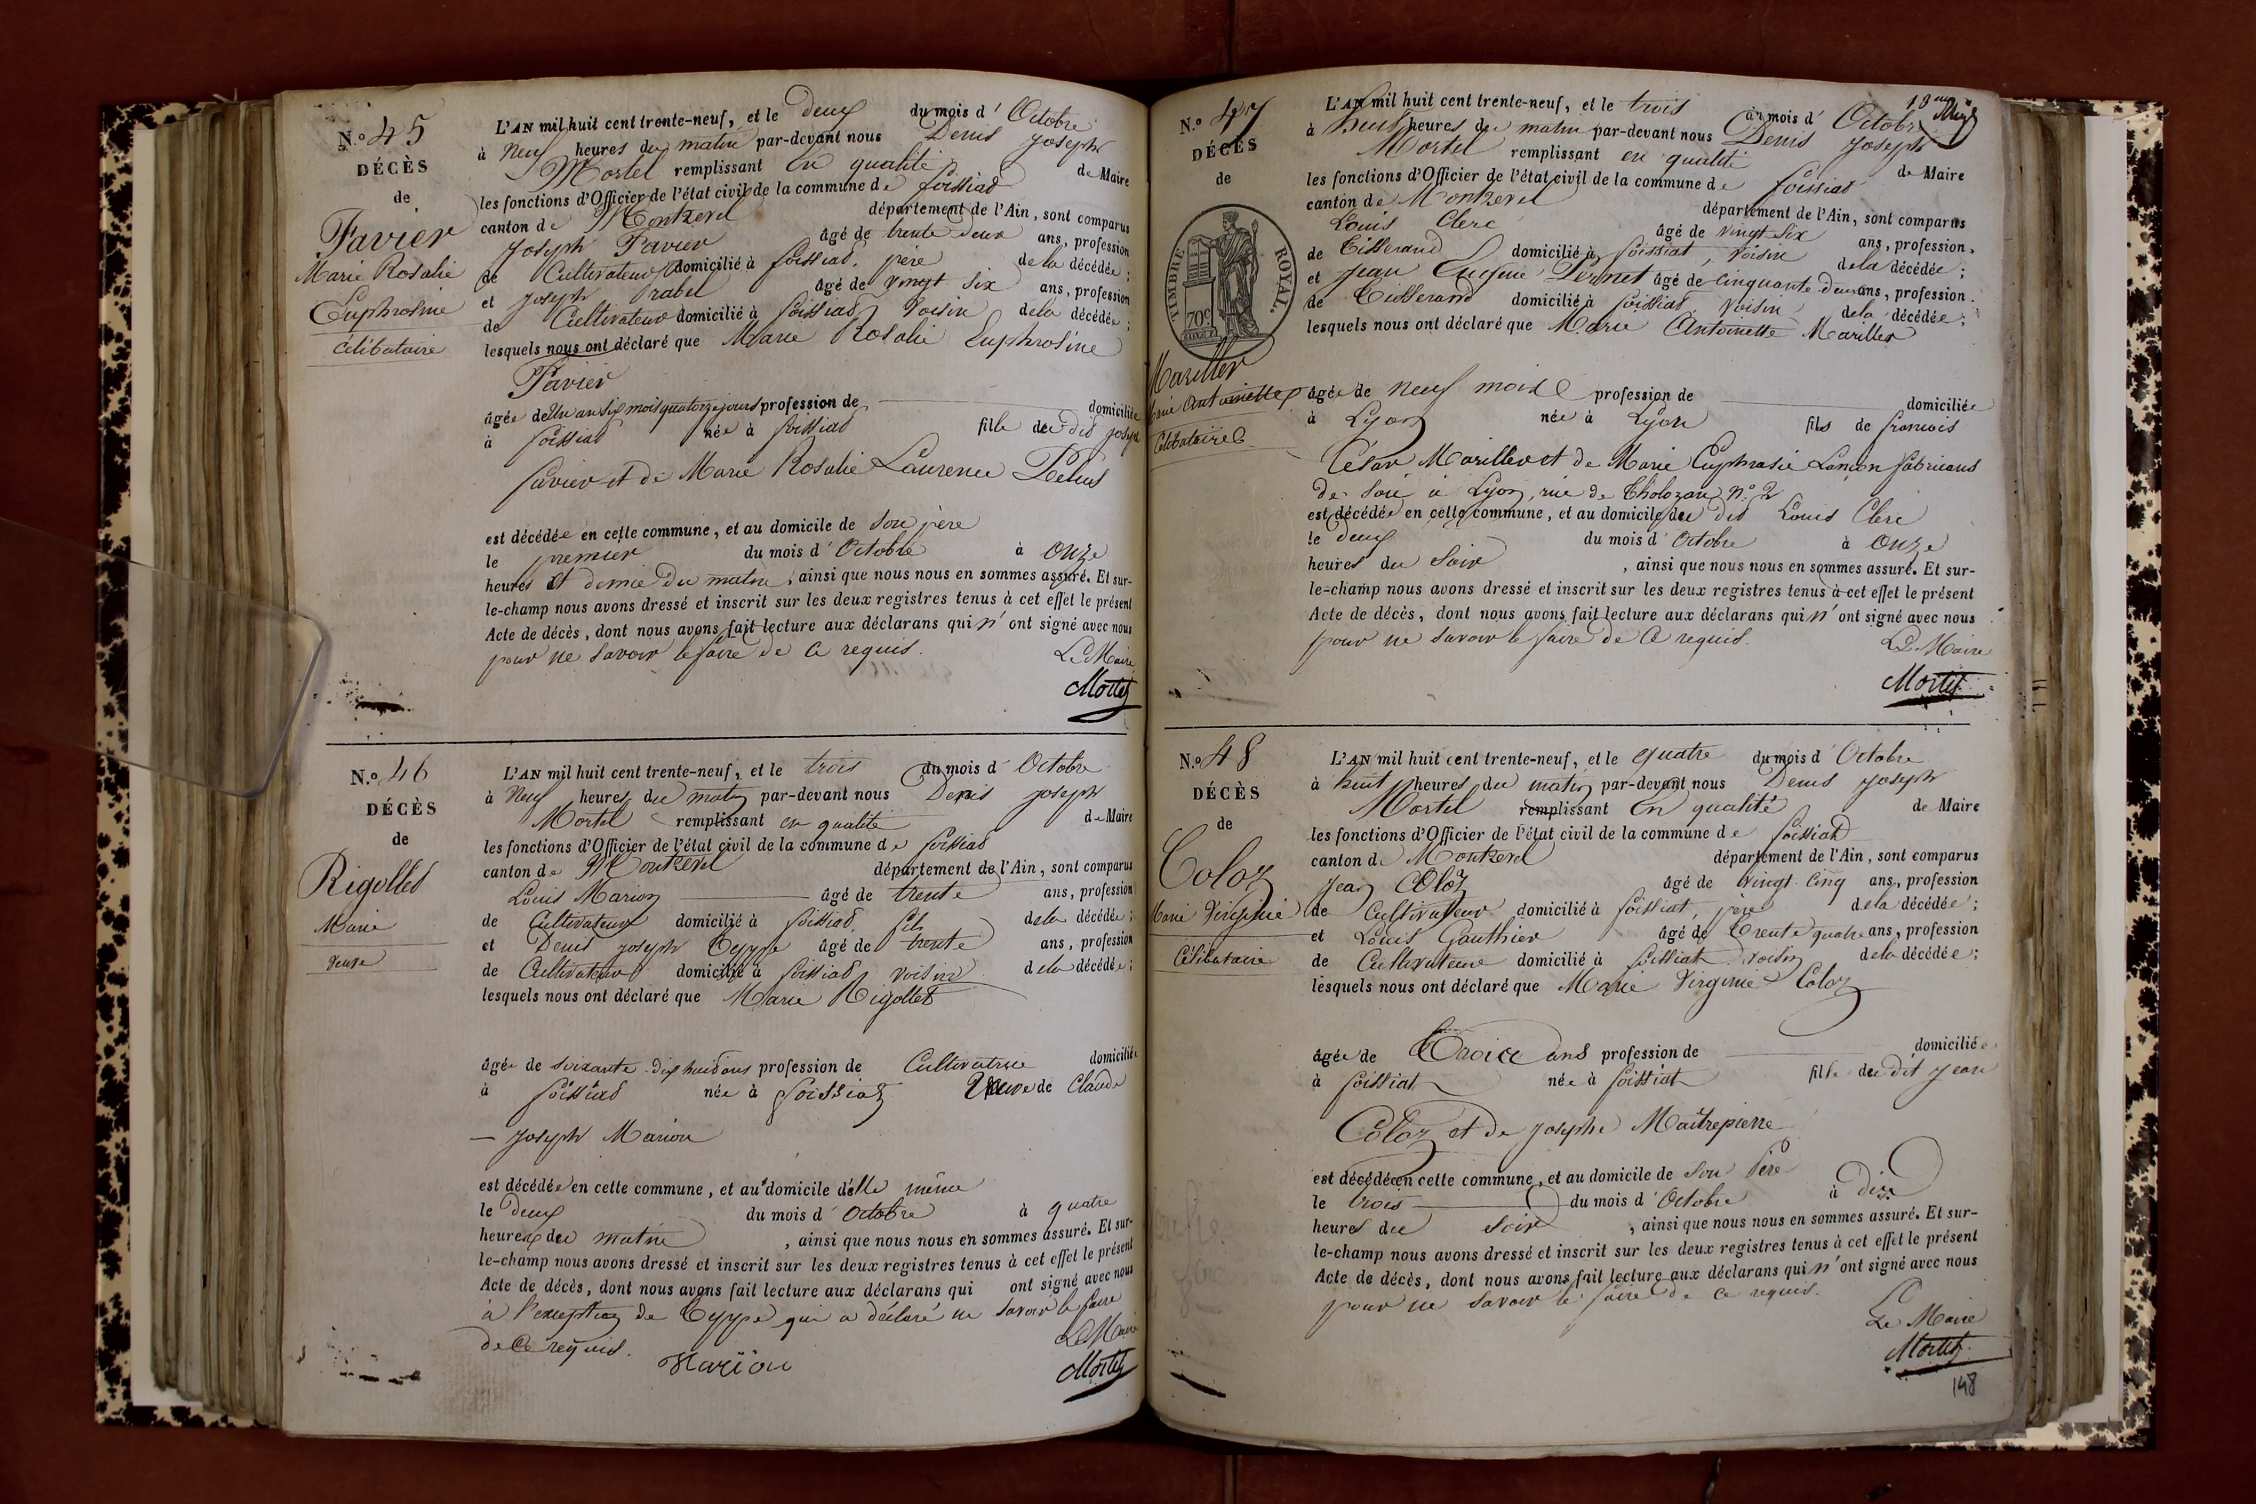 N.º 45
DÉCÈS
de
Favier
Marie Rosalie
Euphrosine
célibataire
L'AN mil huit cent trente-neuf, et le deux du mois d'Octobre
à neuf heures du matin par-devant nous Denis Joseph
Mortel remplissant en qualité de Maire
les fonctions d'Officier de l'état civil de la commune de foissiat
canton de Montrevel département de l'Ain, sont comparus
Joseph Favier âgé de trente deux ans, profession
de Cultivateur domicilié à foissiat, père de la décédée;
et Joseph Prabel âgé de vingt six ans, profession
de Cultivateur domicilié à foissiat voisin de la décédée;
lesquels nous ont déclaré que Marie Rosalie Euphrosine
Favier
âgée de Un an six mois quatorze jours profession de domiciliée
à foissiat née à foissiat fille du dit Joseph
favier et de Marie Rosalie Laurence
est décédée en cette commune, et au domicile de son père
le premier du mois d'Octobre à onze
heures et demie du matin, ainsi que nous nous en sommes assuré. Et sur-
le-champ nous avons dressé et inscrit sur les deux registres tenus à cet effet le présent
Acte de décès, dont nous avons fait lecture aux déclarans qui n'ont signé avec nous
pour ne savoir le faire de ce requis.
Le Maire
Mortel
N.º 46
DÉCÈS
de
Rigollet
Marie
veuve
L'AN mil huit cent trente-neuf, et le trois du mois d'Octobre
à neuf heures du matin par-devant nous Denis Joseph
Mortel remplissant en qualité de Maire
les fonctions d'Officier de l'état civil de la commune de foissiat
canton de Montrevel département de l'Ain, sont comparus
Louis Marion âgé de trente ans, profession
de Cultivateur domicilié à foissiat, fils de la décédée;
et Denis Joseph Teyppe âgé de trente ans, profession
de Cultivateur domicilié à foissiat voisin de la décédée;
lesquels nous ont déclaré que Marie Rigollet
âgée de soixante-dix huit ans profession de Cultivatrice domiciliée
à foissiat née à foissiat Veuve de Claude
Joseph Marion
est décédée en cette commune, et au domicile d'elle même
le deux du mois d'octobre à quatre
heures du matin, ainsi que nous nous en sommes assuré. Et sur-
le-champ nous avons dressé et inscrit sur les deux registres tenus à cet effet le présent
Acte de décès, dont nous avons fait lecture aux déclarans qui ont signé avec nous
à l'exception de Teyppe qui a déclaré ne savoir le faire
de ce requis.
Le Maire
Marion
Mortel
N.º 47
DÉCÈS
de
TIMBRE ROYAL.
70c
Mariller
Marie Antoinette
célibataire
L'AN mil huit cent trente-neuf, et le trois du mois d'Octobre
à heures du matin par-devant nous Denis Joseph
Mortel remplissant en qualité de Maire
les fonctions d'Officier de l'état civil de la commune de foissiat
canton de Montrevel département de l'Ain, sont comparus
Louis Clerc âgé de vingt six ans, profession
de Tisserand domicilié à foissiat, voisin de la décédée;
et Jean Eugène Pernet âgé de cinquante deux ans, profession
de Tisserand domicilié à foissiat voisin de la décédée;
lesquels nous ont déclaré que Marie Antoinette Mariller
âgée de neuf mois profession de domiciliée
à Lyon née à Lyon fils de francois
César Mariller et de Marie Euphrasie Lançon fabricans
de soie à Lyon, rue de Tholozan n.º 2
est décédée en cette commune, et au domicile du dit Louis Clerc
le deux du mois d'Octobre à onze
heures du soir, ainsi que nous nous en sommes assuré. Et sur-
le-champ nous avons dressé et inscrit sur les deux registres tenus à cet effet le présent
Acte de décès, dont nous avons fait lecture aux déclarans qui n'ont signé avec nous
pour ne savoir le faire de ce requis.
Le Maire
Mortel
N.º 48
DÉCÈS
de
Coloz
Marie Virginie
Célibataire
L'AN mil huit cent trente-neuf, et le quatre du mois d'Octobre
à huit heures du matin par-devant nous Denis Joseph
Mortel remplissant en qualité de Maire
les fonctions d'Officier de l'état civil de la commune de foissiat
canton de Montrevel département de l'Ain, sont comparus
Jean Coloz âgé de vingt-cinq ans, profession
de Cultivateur domicilié à foissiat, père de la décédée;
et Louis Gauthier âgé de trente quatre ans, profession
de Cultivateur domicilié à foissiat voisin de la décédée;
lesquels nous ont déclaré que Marie Virginie Coloz
âgée de Trois ans profession de domiciliée
à foissiat née à foissiat fille du dit Jean
Coloz et de Josephe Maîtrepierre
est décédée en cette commune, et au domicile de son Père
le trois du mois d'Octobre à dix
heures du soir, ainsi que nous nous en sommes assuré. Et sur-
le-champ nous avons dressé et inscrit sur les deux registres tenus à cet effet le présent
Acte de décès, dont nous avons fait lecture aux déclarans qui n'ont signé avec nous
pour ne savoir le faire de ce requis.
Le Maire
Mortel
148